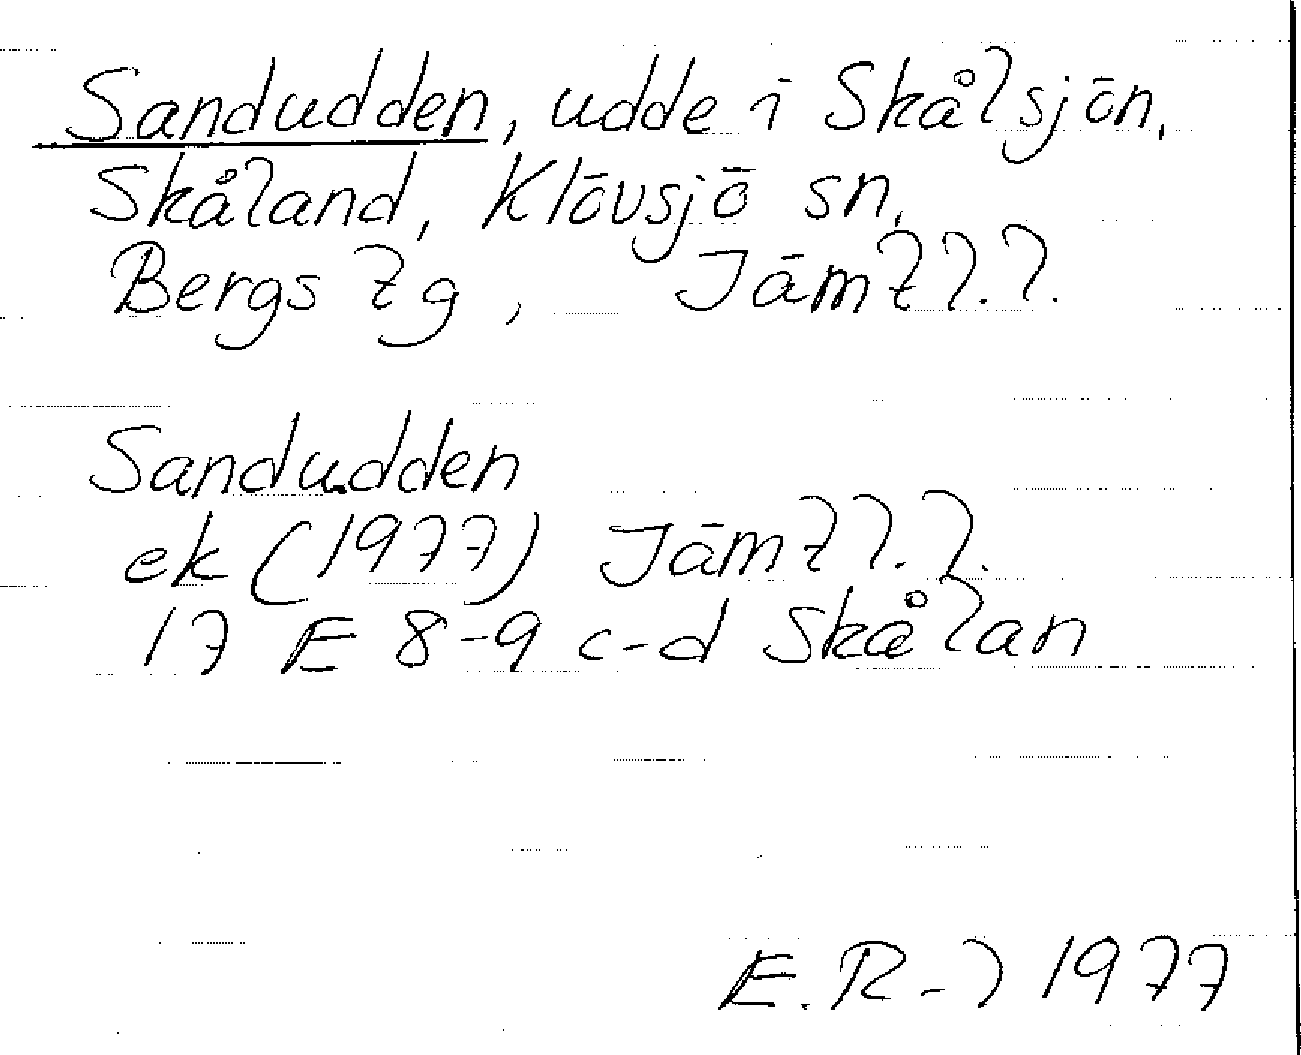 Sandudden, udde i Skålsjön,
Skåland, Klövsjö sn,
Bergs tg, Jämtl.l.
Sandudden
ek (1977) Jämtl.l.
17 E 8-9 c-d Skålan
E.R-l 1977